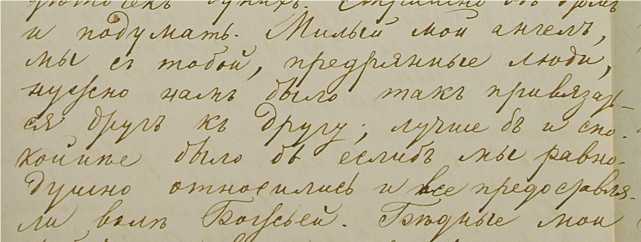 и подумать. Милый мой ангелъ,
мы съ тобой, предрянные люди,
нужно намъ было такъ привязат-
ся другъ къ другу; лучше бъ и спо-
койнѣе было бы еслибъ мы равно-
душно относились и все предоставля-
ли волѣ Божьей. Бѣдные мои